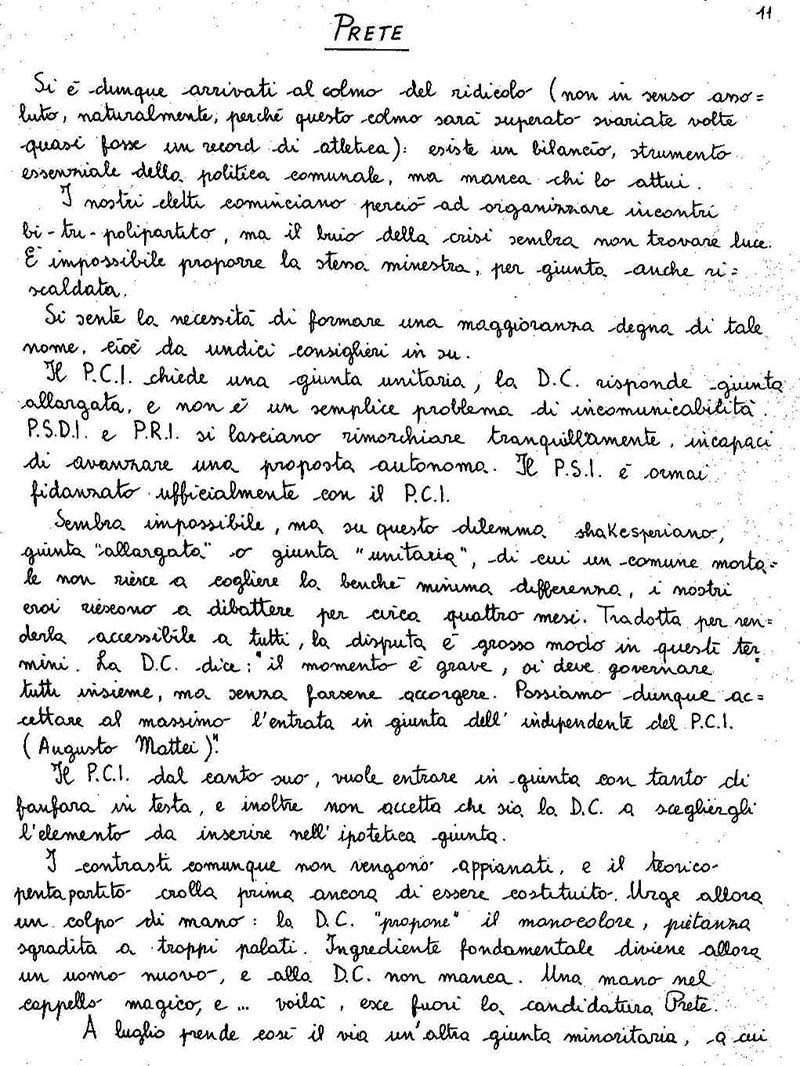 11
PRETE
Si è dunque arrivati al colmo del ridicolo (non in senso asso=
luto, naturalmente, perché questo colmo sarà superato svariate volte
quasi fosse un record di atletica): esiste un bilancio, strumento
essenziale della politica comunale, ma manca chi lo attui.
I nostri eletti cominciano perciò ad organizzare incontri
bi-tri-polipartito, ma il buio della crisi sembra non trovare luce.
È impossibile proporre la stessa minestra, per giunta anche ri=
scaldata.
Si sente la necessità di formare una maggioranza degna di tale
nome, cioè da undici consiglieri in su.
Il P.C.I. chiede una giunta unitaria, la D.C. risponde giunta
allargata, e non è un semplice problema di incomunicabilità.
P.S.D.I. e P.R.I. si lasciano rimorchiare tranquillamente, incapaci
di avanzare una proposta autonoma. Il P.S.I. è ormai
fidanzato ufficialmente con il P.C.I.
Sembra impossibile, ma su questo dilemma shakesperiano,
giunta "allargata" o giunta "unitaria", di cui un comune morta=
le non riesce a cogliere la benché minima differenza, i nostri
eroi riescono a dibattere per circa quattro mesi. Tradotta per ren=
derla accessibile a tutti, la disputa è grosso modo in questi ter=
mini. La D.C. dice: "il momento è grave, si deve governare
tutti insieme, ma senza farsene accorgere. Possiamo dunque ac=
cettare al massimo l'entrata in giunta dell'indipendente del P.C.I.
(Augusto Mattei)".
Il P.C.I. dal canto suo, vuole entrare in giunta con tanto di
fanfara in testa, e inoltre non accetta che sia la D.C. a sceglergli
l'elemento da inserire nell'ipotetica giunta.
I contrasti comunque non vengono appianati, e il teorico
pentapartito crolla prima ancora di essere costituito. Urge allora
un colpo di mano: la D.C. "propone" il monocolore, pietanza
sgradita a troppi palati. Ingrediente fondamentale diviene allora
un uomo nuovo, e alla D.C. non manca. Una mano nel
cappello magico, e ... voilà, esce fuori la candidatura Prete.
A luglio prende così il via un'altra giunta minoritaria, a cui